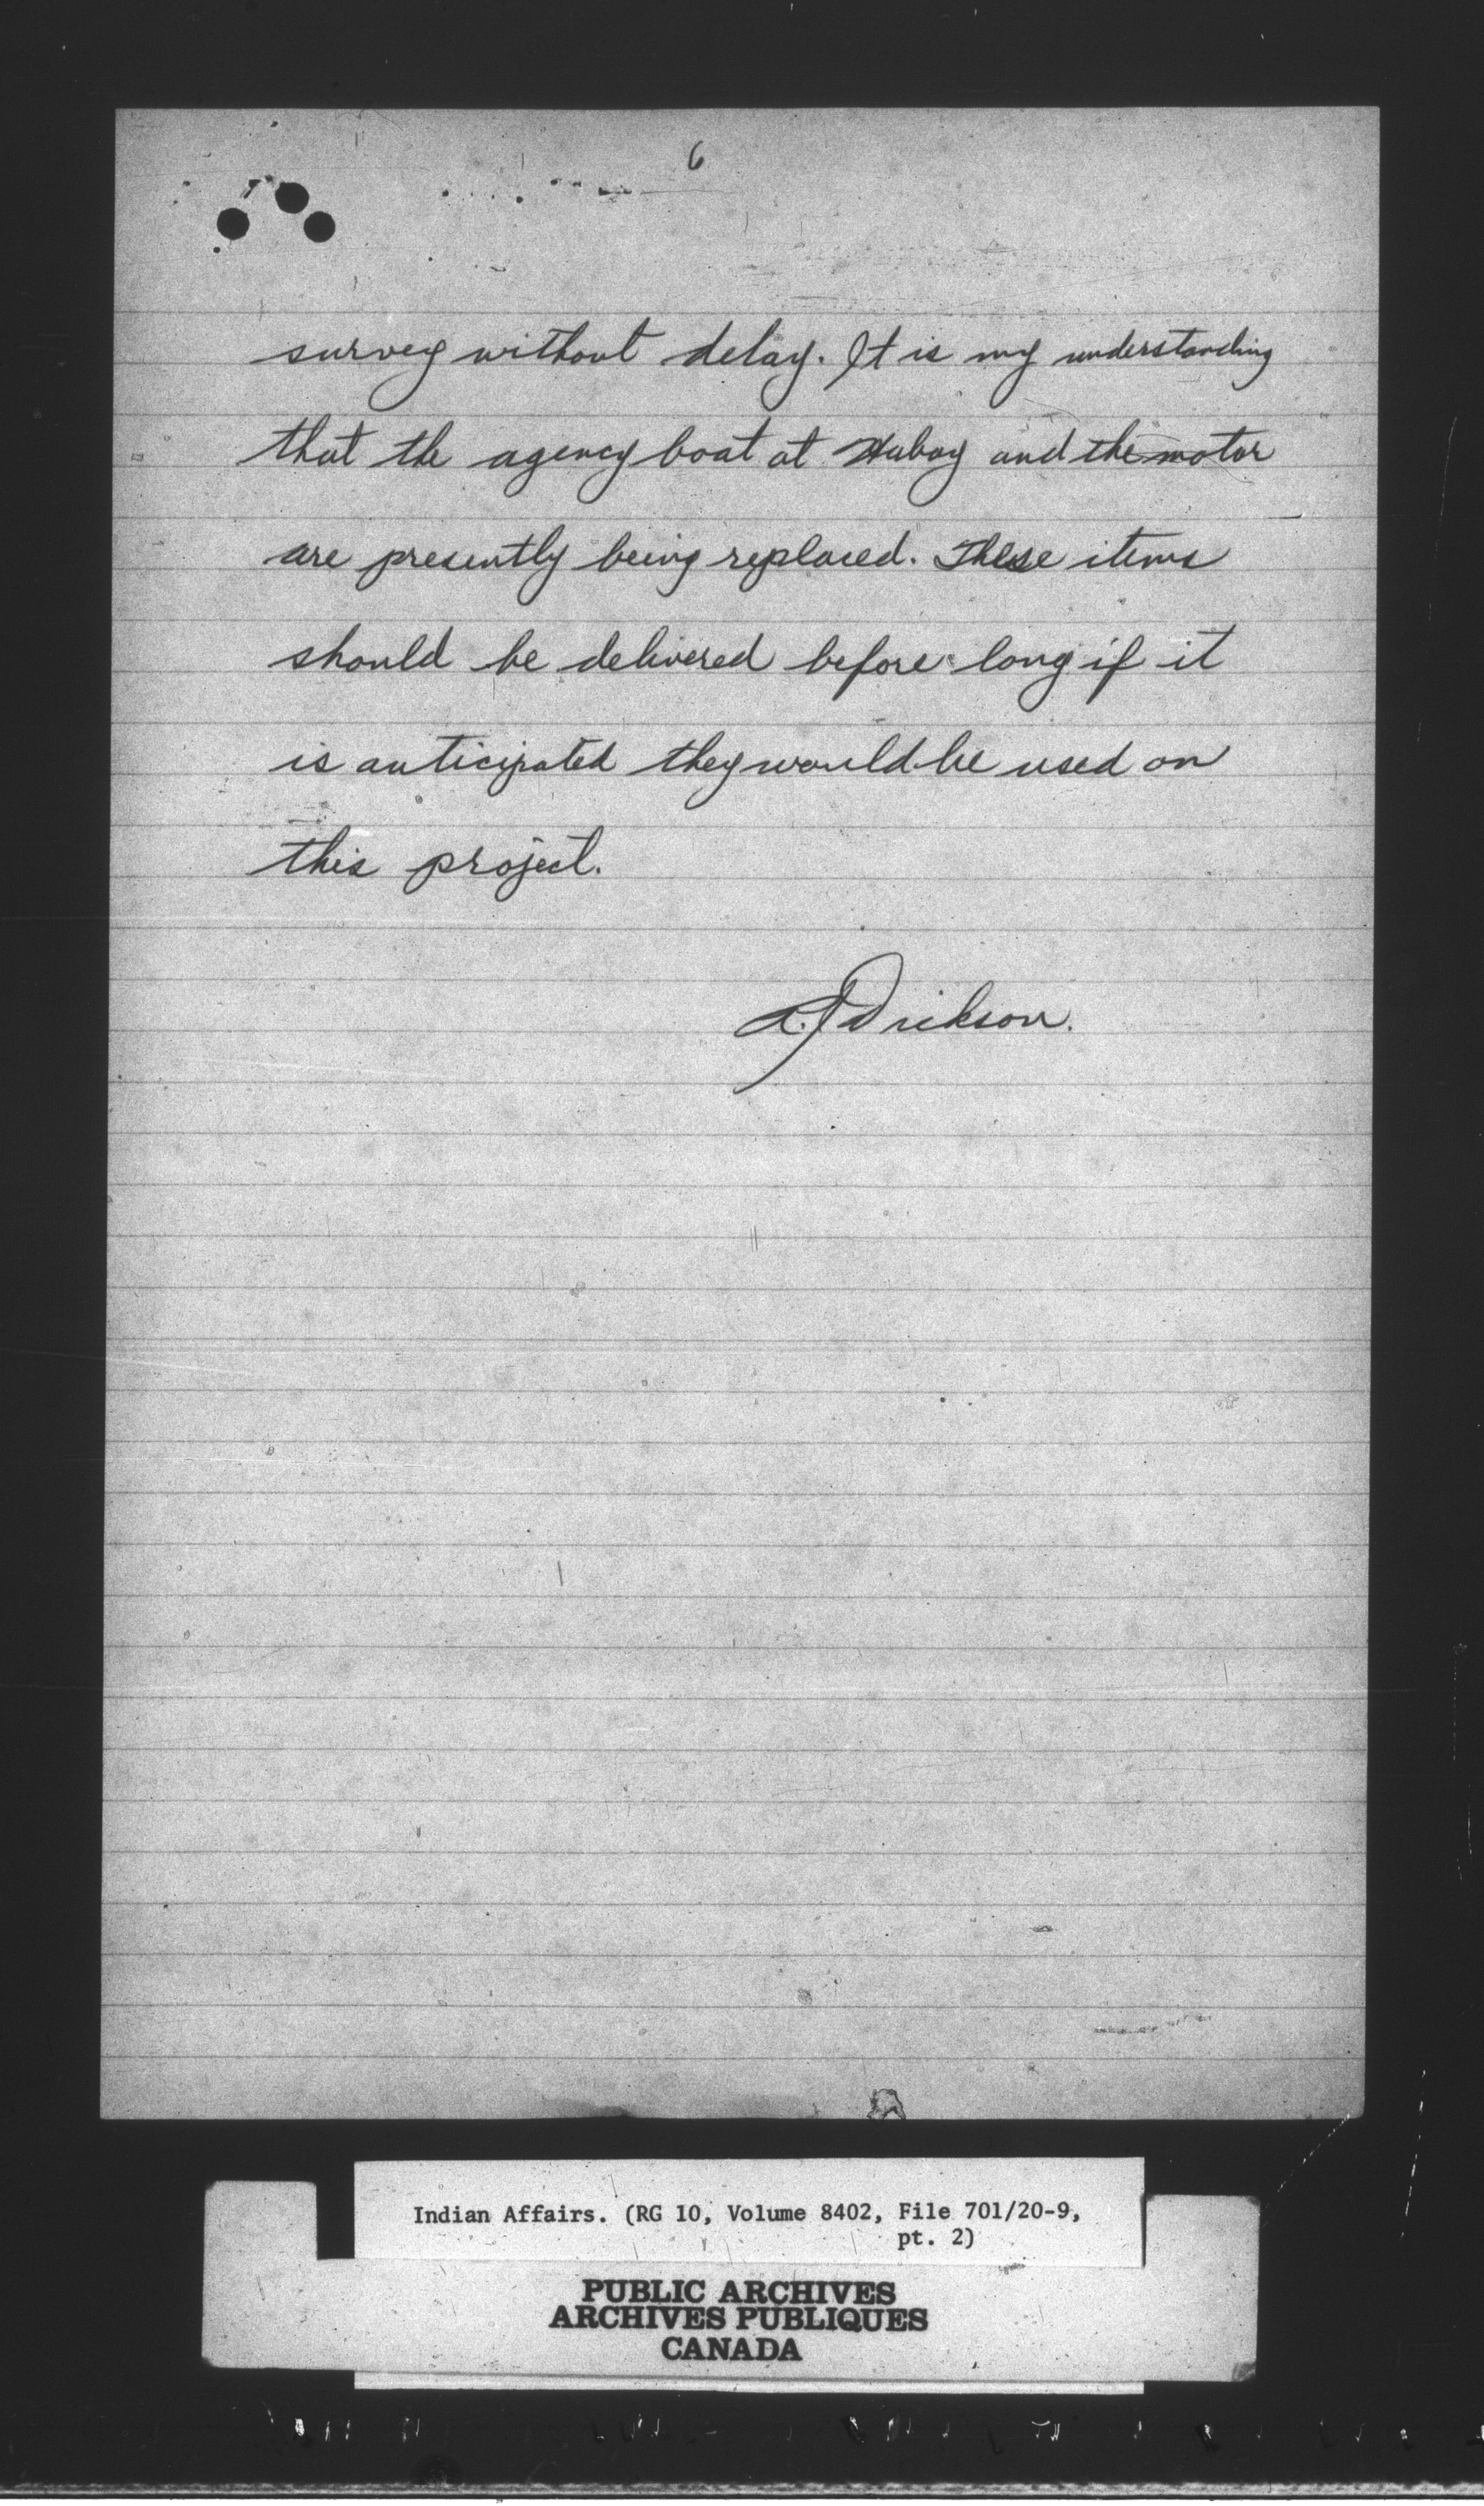 6
survey without delay. It is my understanding
that the agency boat at Wabag and the motor
are presently being replaced. These items
should be delivered before long if it
is anticipated they would be used on
this project.
Indian Affairs. (RG 10, Volume 8402, File 701/20-9,
pt. 2)
PUBLIC ARCHIVES
ARCHIVES PUBLIQUES
CANADA